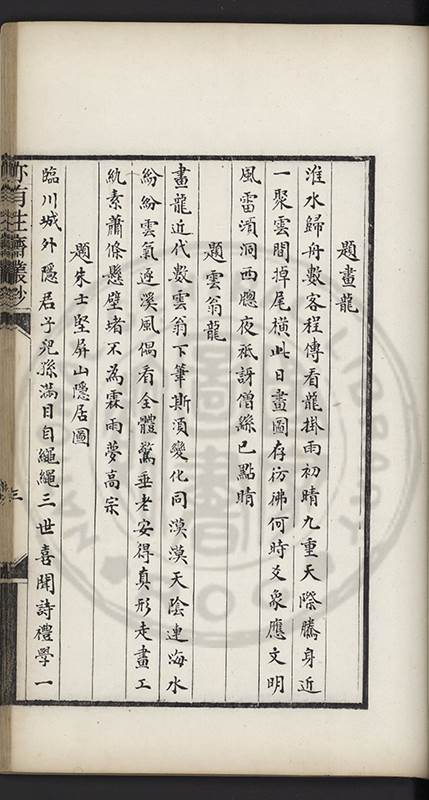 題畫龍
淮水歸舟數客程傳看龍掛雨初晴九重天際騰身近
一聚雲間掉尾橫此日畫圖存彷彿何時爻象應文明
風雷澒洞西牕夜祗訝僧繇已點睛
題雲翁龍
畫龍近代數雲翁下筆斯須變化同漠漠天陰連海水
紛紛雲氣逐溪風偶看全體驚垂老安得真形走畫工
紈素蕭條懸壁堵不為霖雨夢高宗
題朱士堅屏山隱居圖
臨川城外隱君子兒孫滿目自繩繩三世喜聞詩禮學一
亦有生齋叢鈔
三